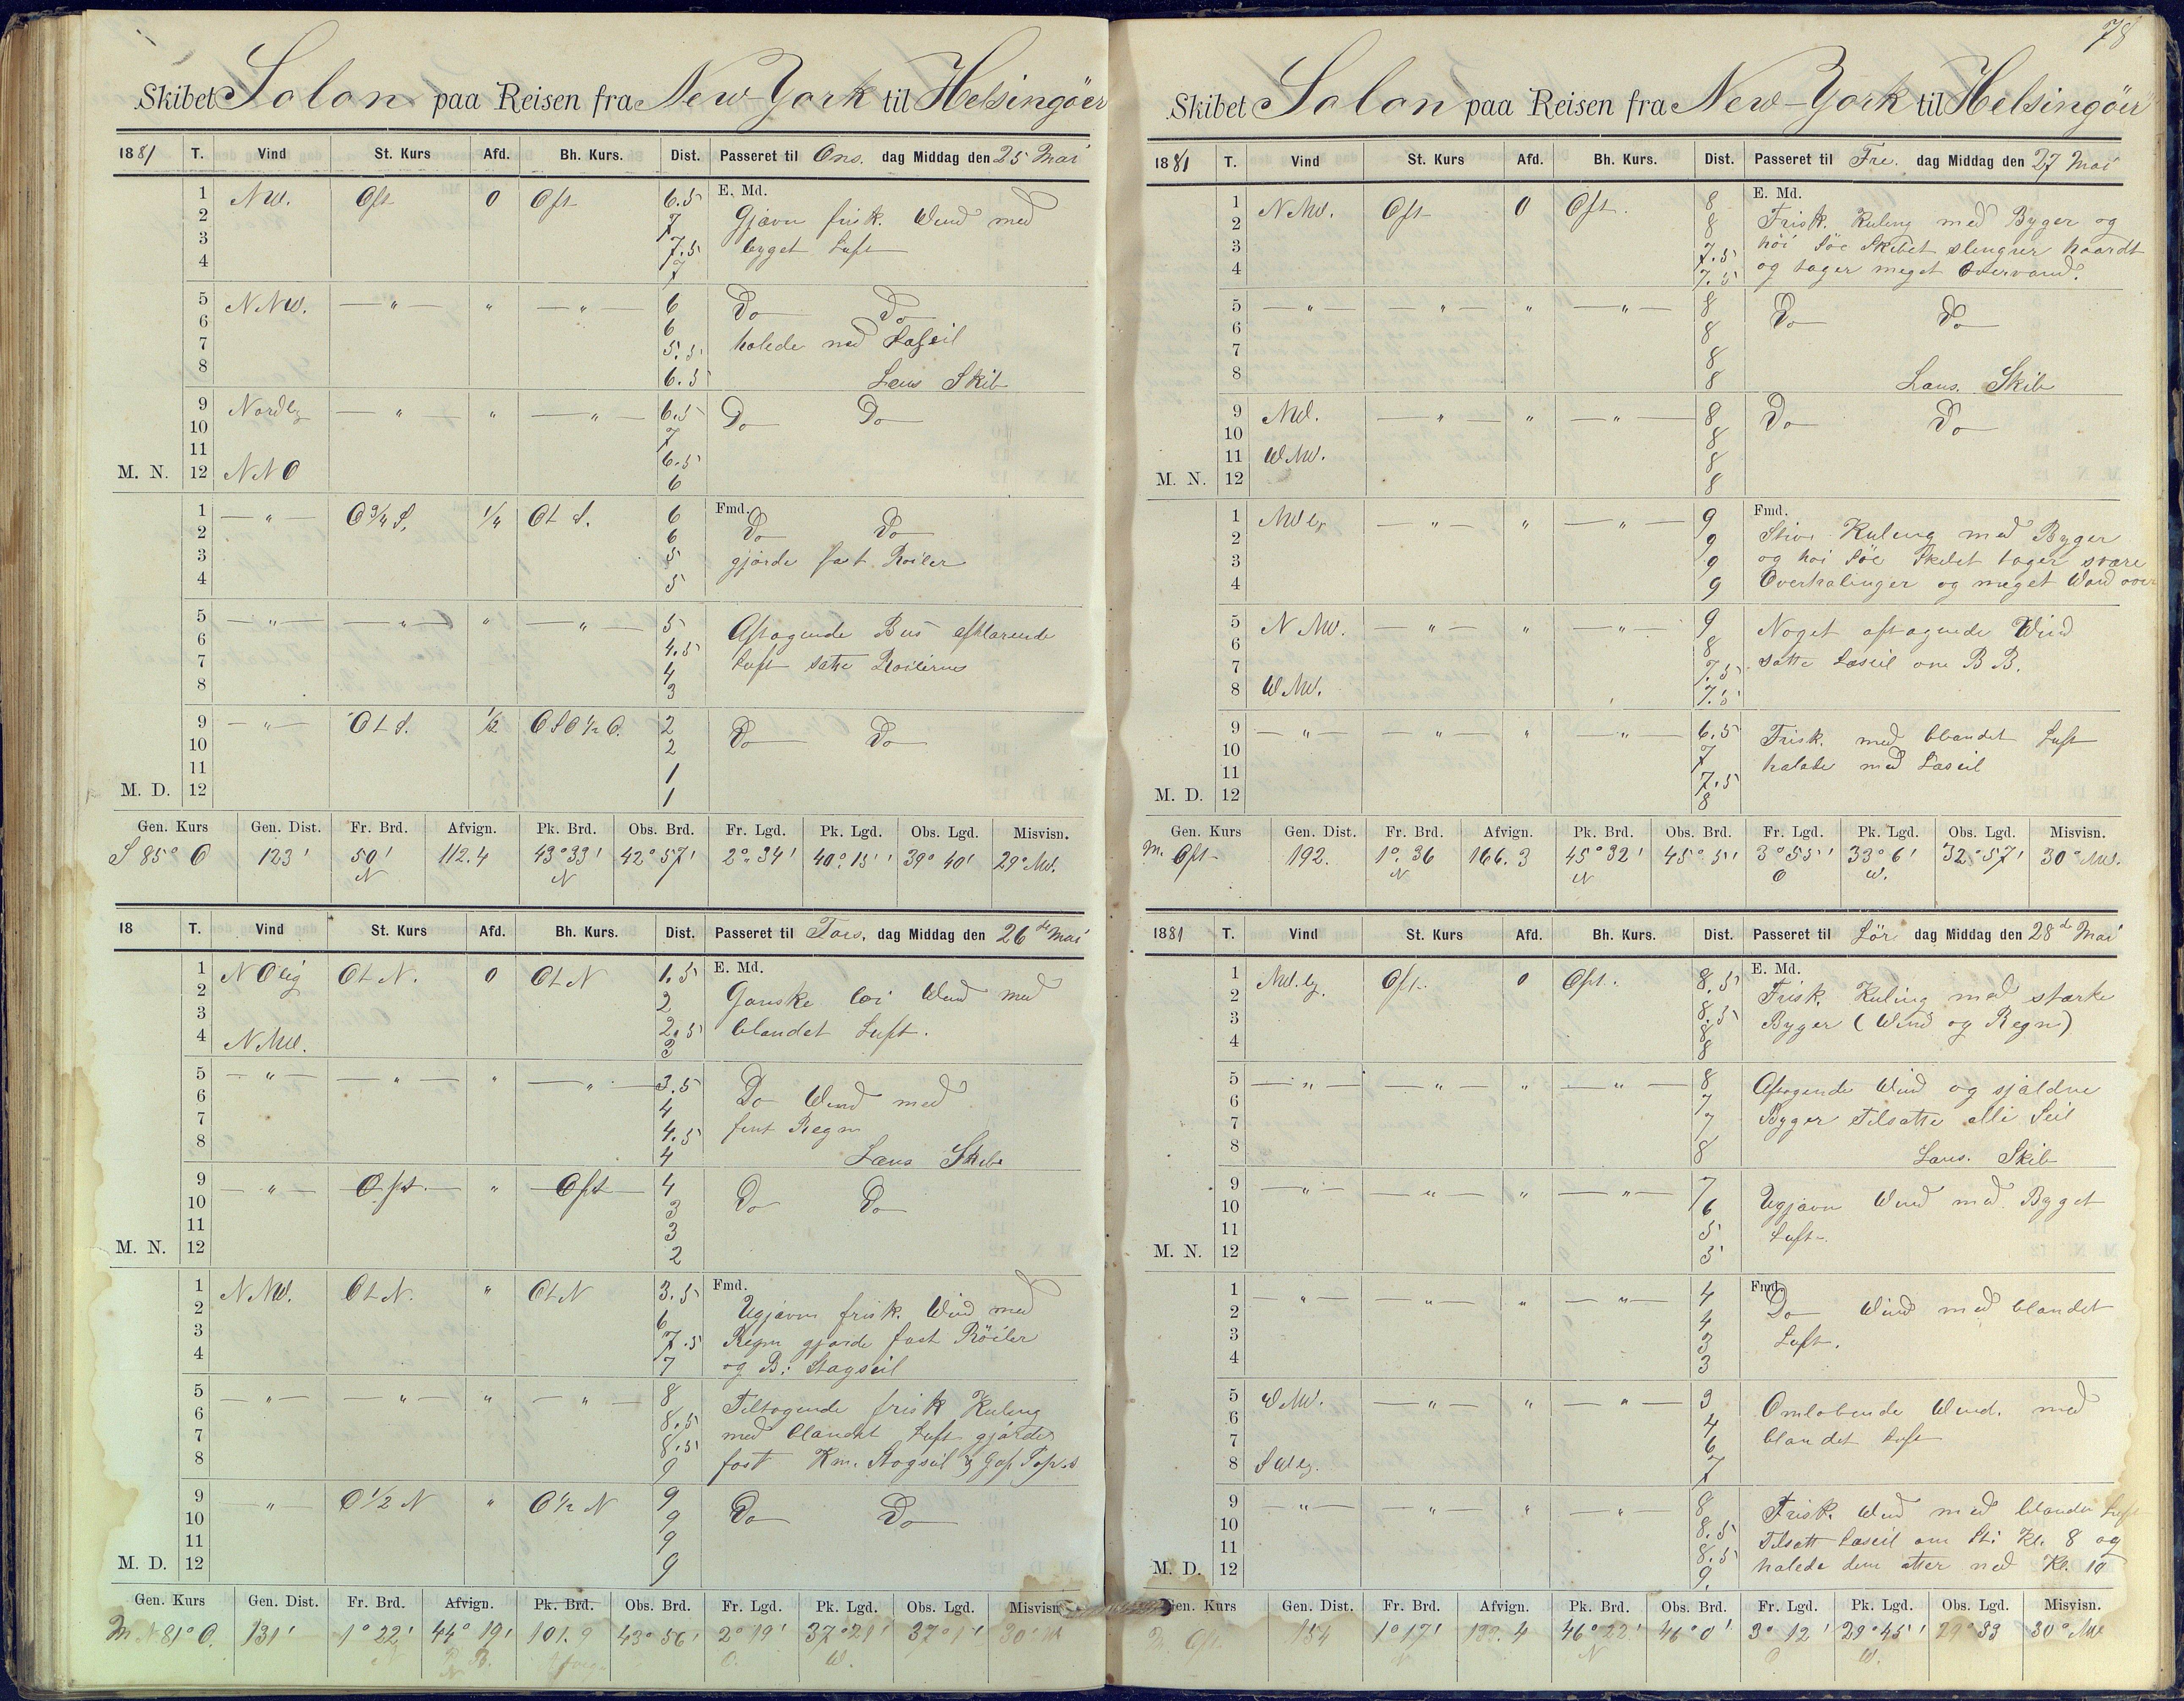 78
Skibet Solon paa Reisen fra New-York til Helsingöer
1881 T. Vind St. Kurs Afd. Bh. Kurs. Dist. Passeret til Ons. dag Middag den 25 Mai
E. Md.
1 NW. Ost 0 Ost 6.5 Gjævn frisk. Wind med
2 7
3 7.5 byget Luft
4 7
5 NNW. — " — " — " — 6 Do Do
6 6
7 5.5 halede ned Læseil
8 6.5 Lens Skib
9 Nordlg — " — " — " — 6.5 Do Do
10 7
11 6.5
M. N. 12 NNO 6
Fmd.
1 — " — O 3/4 S. 1/4 Ot S. 6 Do Do
2 6
3 5 gjorde fast Roiler
4 5
5 — " — — " — " — " — 5 Aftagende Bris opklarende
6 4.5
7 4 Luft satte Roilerne
8 3
9 — " — Ot S. 1/2 OSO 1/2 O. 2 Do Do
10 2
11 1
M. D. 12 1
Gen. Kurs Gen. Dist. Fr. Brd. Afvign. Pk. Brd. Obs. Brd. Fr. Lgd. Pk. Lgd. Obs. Lgd. Misvisn.
S 85° O 123' 50' 112.4 43°33' 42°57' 2°.34' 40°.15' 39° 40' 29° NW.
N N
18 T. Vind St. Kurs Afd. Bh. Kurs. Dist. Passeret til Tors. dag Middag den 26de Mai
E. Md.
1 NOlig Ot N. 0 Ot N 1.5 Ganske löi Wind med
2 2
3 2.5 blandet Luft.
4 NNW. 3
5 — " — — " — " — " — 3.5 Do Wind med
6 4
7 4.5 fint Regn
8 4 Læns Skib
9 — " — Ost " Ost 4 Do Do
10 3
11 3
M. N. 12 2
Fmd.
1 NNW. Ot N. " Ot N 3.5 Ugjævn frisk. Wind med
2 6
3 7.5 Regn gjorde fast Röiler
4 7 og B: Stagseil
5 — " — — " — " — " — 8 Tiltagende frisk Kuling
6 8.5 med blandet Luft gjordes
7 8.5
8 9 fast Km. Stagseil & Gaf Top.s
9 " O 1/2 N " O 1/2 N 9 Do Do
10 9
11 9
M. D. 12 9
Gen. Kurs Gen. Dist. Fr. Brd. Afvign. Pk. Brd. Obs. Brd. Fr. Lgd. Pk. Lgd. Obs. Lgd. Misvisn
M N 81° O. 131' 1° 22' 44° 19' 101.9 43° 56' 2° 19' 37° 21' 37° 1' 30° W
N P. B. N Afvign O. W.
Skibet Solon paa Reisen fra New-York til Helsingöer
1881 T. Vind St. Kurs Afd. Bh. Kurs. Dist. Passeret til Fre. dag Middag den 27 Mai
E. Md.
1 NNW. Ost 0 Ost. 8 Frisk. Kuling med Byger og
2 8
3 7.5 höi Söe Skibet slengrer haardt
4 7.5 og tager meget Overvand.
5 — " — — " — " — " — 8 Do Do
6 8
7 8
8 8 Læns. Skib
9 NW. — " — " — " — 8 Do Do
10 8
11 WNW. 8
M. N. 12 8
Fmd.
1 NWlg — " — " — " — 9 Stiv Kuling med Byger
2 9
3 9 og höi Söe Skibet tager svære
4 9 Overhalinger og meget Wand over
5 NNW. — " — " — " — 9 Noget aftagende Wind
6 8
7 7.5 satte Læseil om B B.
8 WNW. 7.5
9 — " — — " — " — " — 6.5 Frisk. med blandet Luft
10 7
11 7.5 halede ned Læseil
M. D. 12 8
Gen. Kurs Gen. Dist. Fr. Brd. Afvign. Pk. Brd. Obs. Brd. Fr. Lgd. Pk. Lgd. Obs. Lgd. Misvisn.
M. Ost 192. 1°. 36 166.3 45° 32' 45° 5' 3° 55' 33° 6' 32° 57' 30° NW.
N N O W.
1881 T. Vind St. Kurs Afd. Bh. Kurs. Dist. Passeret til Lör dag Middag den 28de Mai
E. Md.
1 NW.lg. Ost. 0 Ost. 8.5 Frisk. Kuling med stærke
2 8.5
3 8 Byger (Wind og Regn)
4 8
5 — " — — " — " — " — 8 Aftagende Wind og sjældne
6 7
7 7 Byger Tilsatte alle Seil
8 8 Læns. Skib
9 — " — — " — " — " — 7 Ugjævn Wind med Byget
10 6
11 5 Luft.
M. N. 12 5
Fmd.
1 — " — — " — " — " — 4 Do Wind med blandet
2 4
3 3 Luft.
4 3
5 WNW. — " — " — " — 3 Omlobende Wind. med
6 4
7 6 blandet Luft
8 SWlg. 7
9 — " — — " — " " 8 Frisk. Wind med blandet Luft
10 8.5
11 8.5 Tilsatt Læseil om St: Kl. 8 og
M. D. 12 9. halede dem atter ned Kl. 10
Gen. Kurs Gen. Dist. Fr. Brd. Afvign. Pk. Brd. Obs. Brd. Fr. Lgd. Pk. Lgd. Obs. Lgd. Misvisn.
M. Ost 154 1° 17' 133.4 46° 22' 46° 0' 3° 12' 29° 45' 29° 33 30° NW
N N O W.